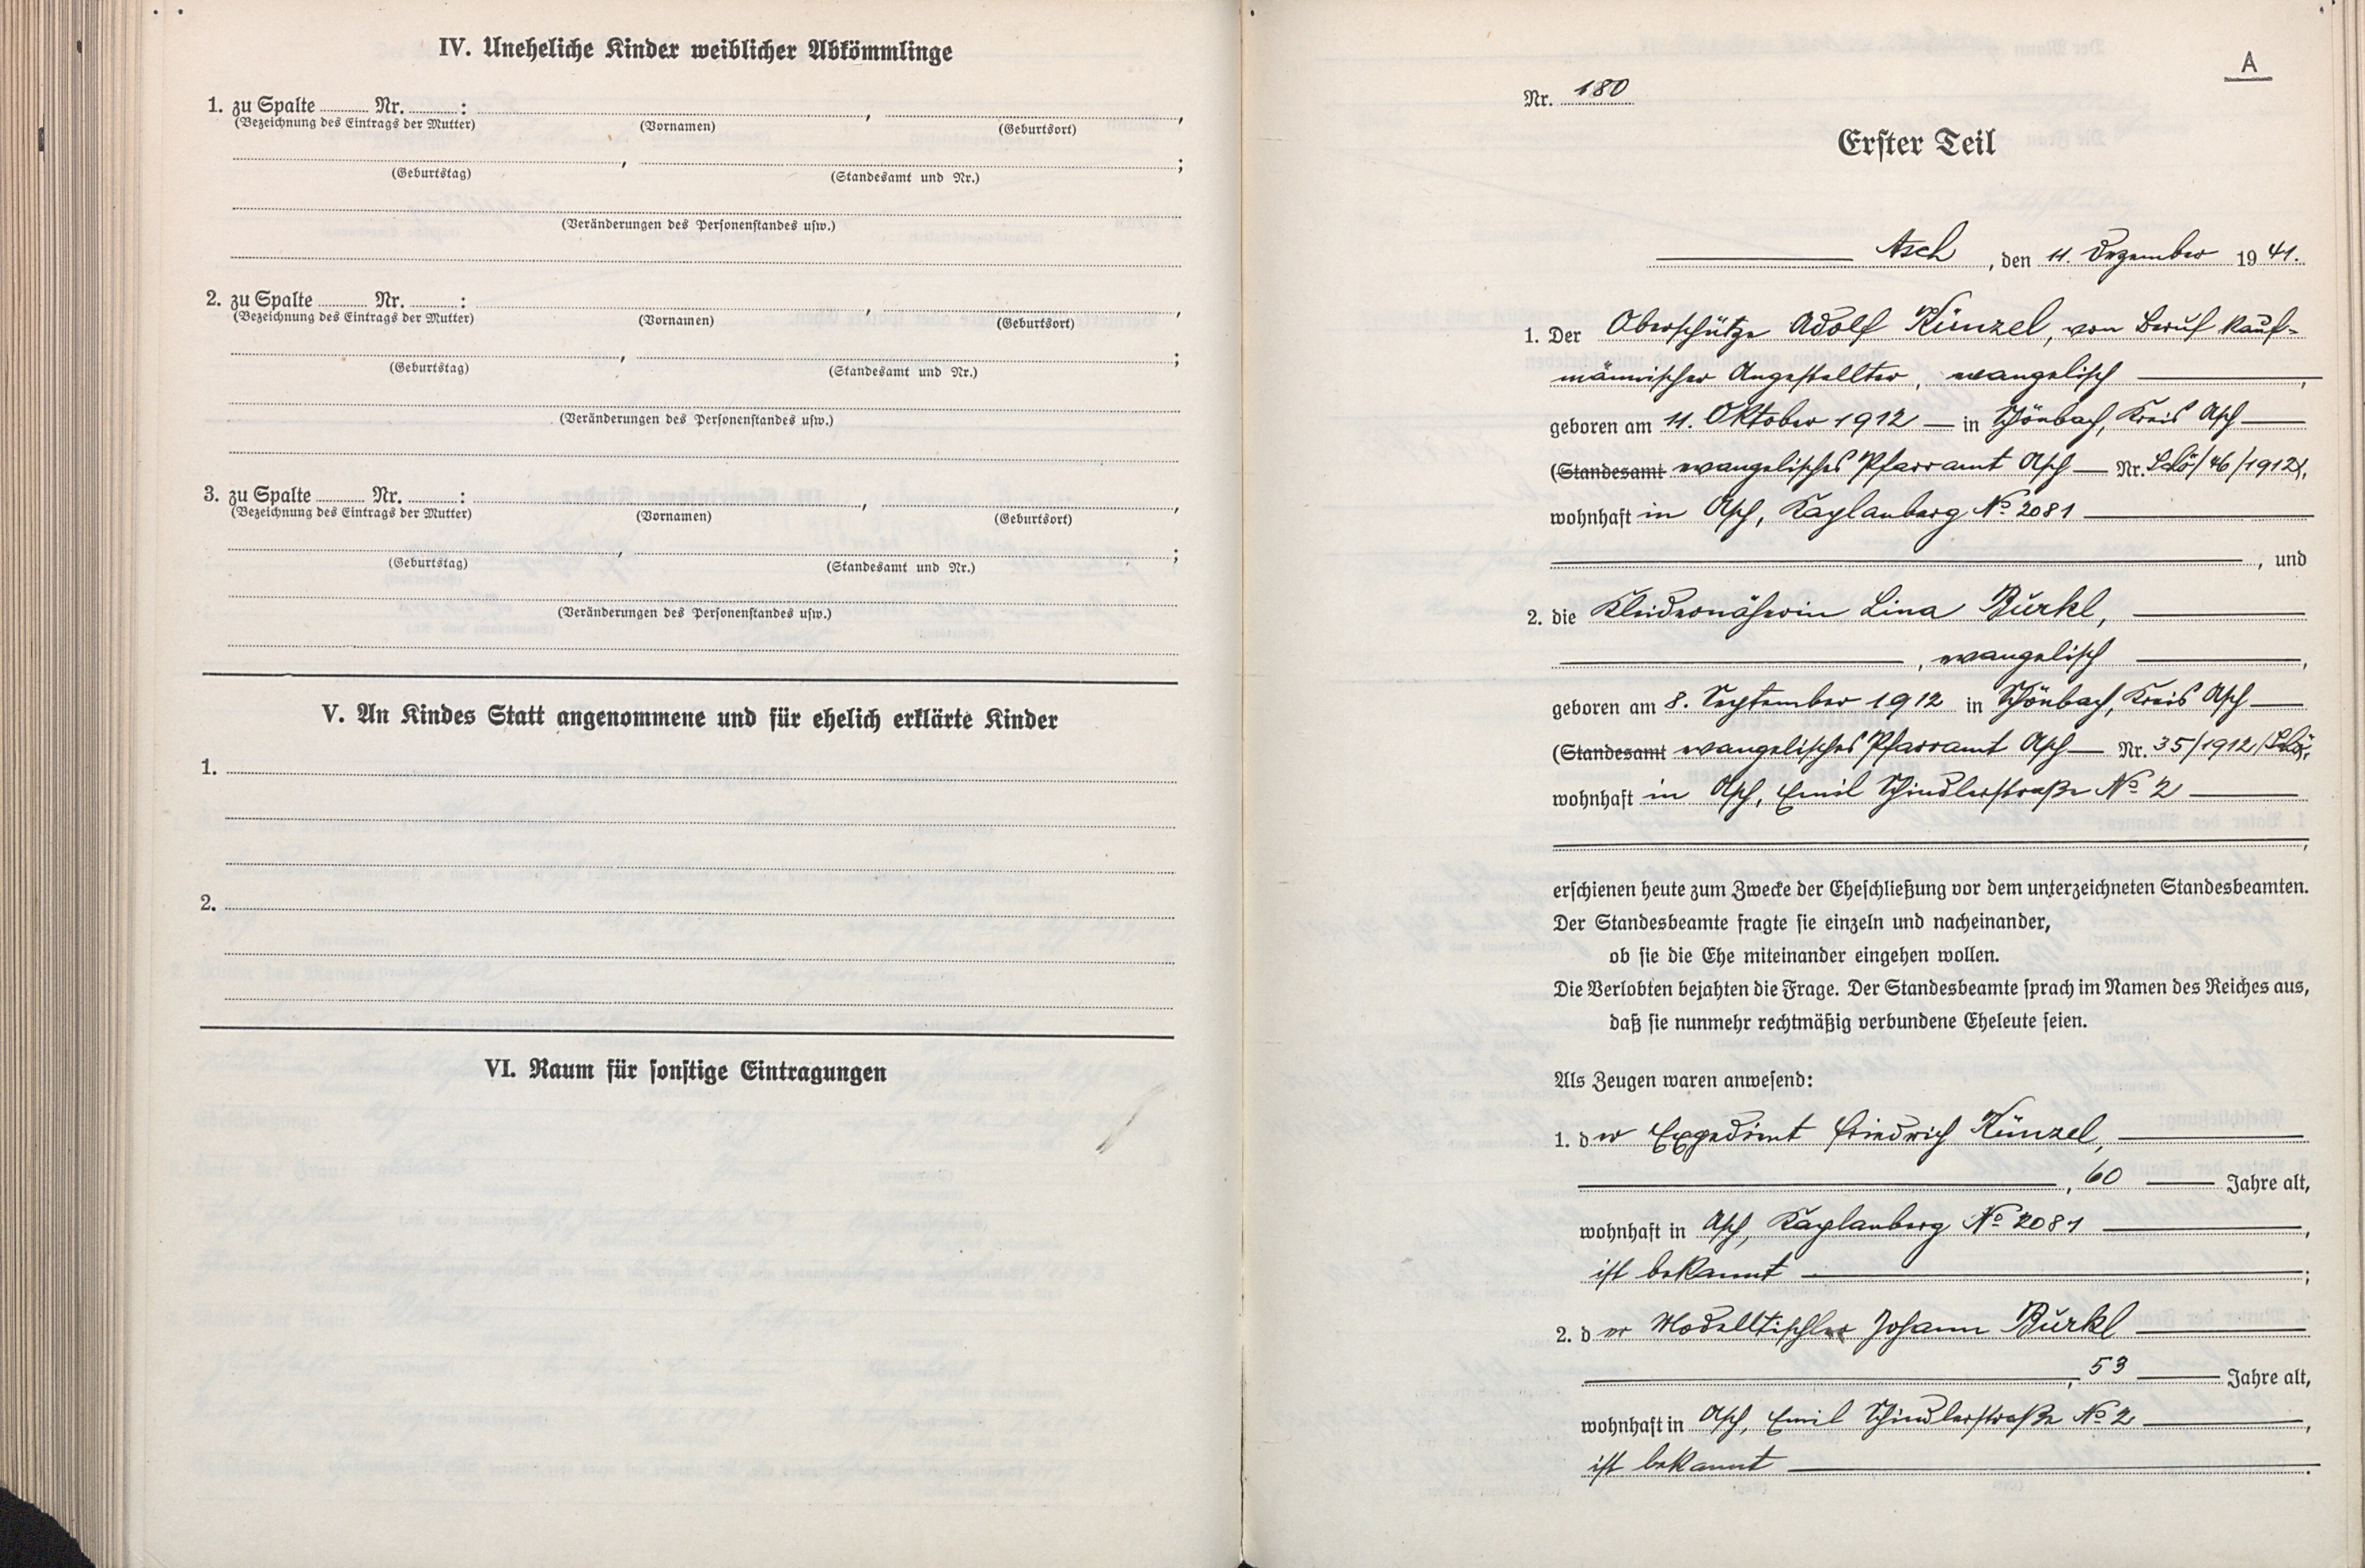 IV. Uneheliche Kinder weiblicher Abkömmlinge
1. zu Spalte ........ Nr. ........:
(Bezeichnung des Eintrags der Mutter) (Vornamen) (Geburtsort)
(Geburtstag) (Standesamt und Nr.)
(Veränderungen des Personenstandes usw.)
2. zu Spalte ........ Nr. ........:
(Bezeichnung des Eintrags der Mutter) (Vornamen) (Geburtsort)
(Geburtstag) (Standesamt und Nr.)
(Veränderungen des Personenstandes usw.)
3. zu Spalte ........ Nr. ........:
(Bezeichnung des Eintrags der Mutter) (Vornamen) (Geburtsort)
(Geburtstag) (Standesamt und Nr.)
(Veränderungen des Personenstandes usw.)
V. An Kindes Statt angenommene und für ehelich erklärte Kinder
1.
2.
VI. Raum für sonstige Eintragungen
A
Nr. 180
Erster Teil
Asch, den 11. Dezember 1941.
1. Der Oberschütze Adolf Künzel, von Beruf kauf-
männischer Angestellter, evangelisch,
geboren am 11. Oktober 1912 — in Schönbach, Kreis Asch
(Standesamt evangelisches Pfarramt Asch — Nr. Schö/46/1912),
wohnhaft in Asch, Kaplanberg No 2081
, und
2. die Kleidernäherin Lina Bürkl,
, evangelisch,
geboren am 8. September 1912 in Schönbach, Kreis Asch
(Standesamt evangelisches Pfarramt Asch — Nr. 35/1912/Schö),
wohnhaft in Asch, Emil Schindlerstraße No 2
erschienen heute zum Zwecke der Eheschließung vor dem unterzeichneten Standesbeamten.
Der Standesbeamte fragte sie einzeln und nacheinander,
ob sie die Ehe miteinander eingehen wollen.
Die Verlobten bejahten die Frage. Der Standesbeamte sprach im Namen des Reiches aus,
daß sie nunmehr rechtmäßig verbundene Eheleute seien.
Als Zeugen waren anwesend:
1. der Expedient Friedrich Künzel,
, 60 Jahre alt,
wohnhaft in Asch, Kaplanberg No 2081,
ist bekannt;
2. der Modelltischler Johann Bürkl
, 53 Jahre alt,
wohnhaft in Asch, Emil Schindlerstraße No 2,
ist bekannt.